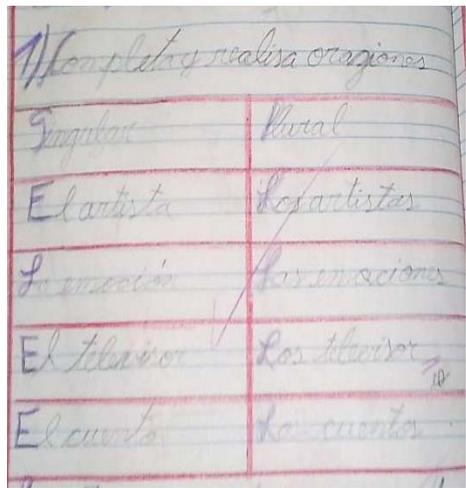 1) Completa y realisa oraziones
Singular Plural
El artista Los artistas
La emoción Las emociones
El televisor Los televisor
El cuento Los cuentos